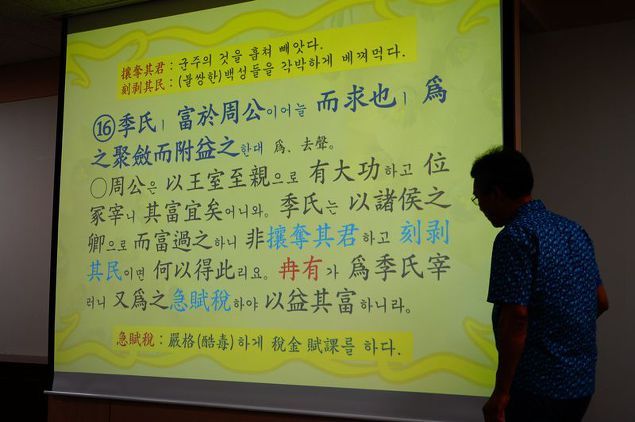 攘奪其君 : 군주의 것을 훔쳐 빼앗다.
刻剥其民 : (불쌍한)백성들을 각박하게 베껴먹다.
⑯季氏ㅣ 富於周公이어늘 而求也ㅣ 爲
之聚斂而附益之한대 爲、去聲。
○周公은 以王室至親으로 有大功하고 位
冢宰니 其富宜矣어니와。 季氏는 以諸侯之
卿으로 而富過之하니 非攘奪其君하고 刻剥
其民이면 何以得此리요。 冉有가 爲季氏宰
러니 又爲之急賦稅하야 以益其富하니라。
急賦稅 : 嚴格(酷毒)하게 稅金 賦課를 하다.